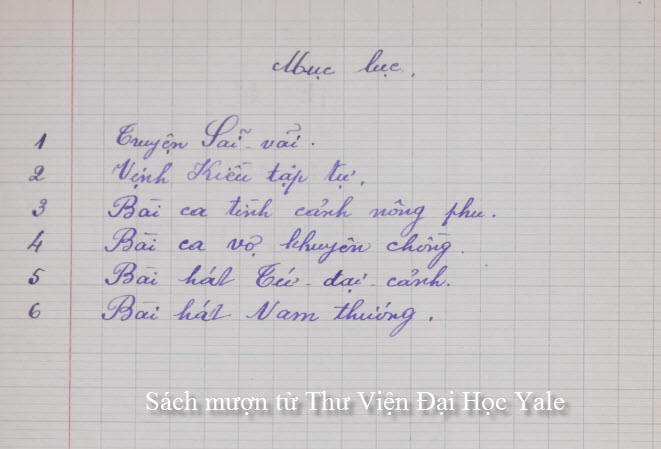 Mục lục.
1 Truyện Sãi-vãi.
2 Vịnh Kiều tập tự.
3 Bài ca tình cảnh nông phu.
4 Bài ca vợ khuyên chồng.
5 Bài hát Tứ-đại-cảnh.
6 Bài hát Nam thương.
Sách mượn từ Thư Viện Đại Học Yale